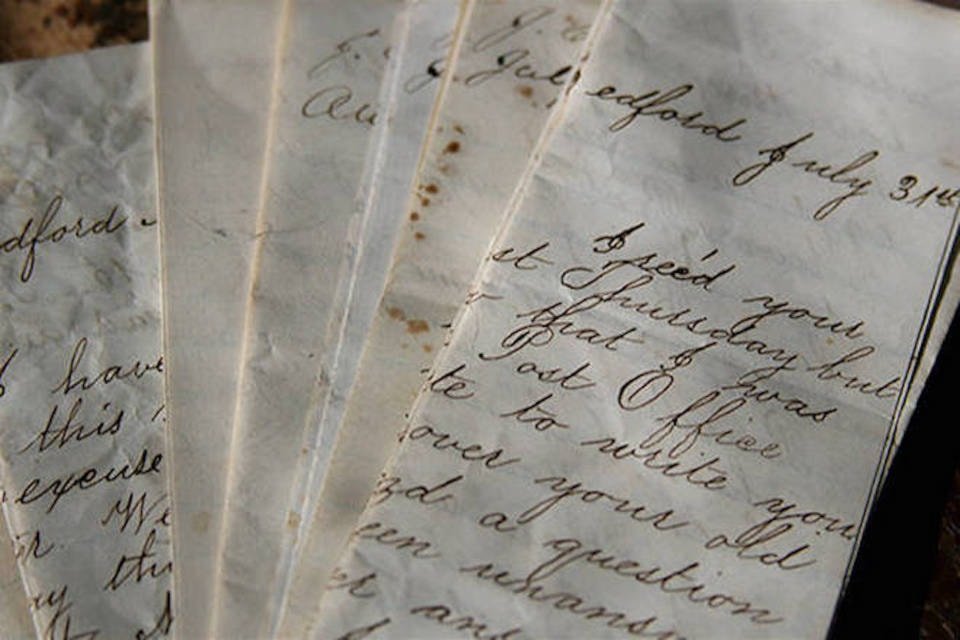 dford
have
this
excuse
We
thi
J.
Au
J.
Jul
edford July 31st
I rec'd your
st Thursday but
that I was
Post Office
te to write you
over your old
nd a question
een unans
er ans